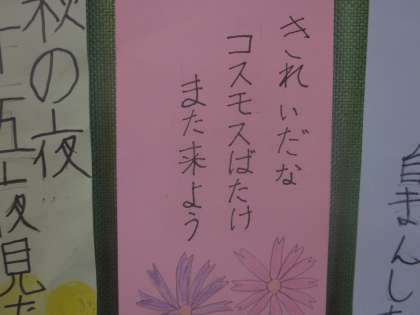 自まんし
きれいだな
コスモスばたけ
また来よう
秋の夜
十五夜見